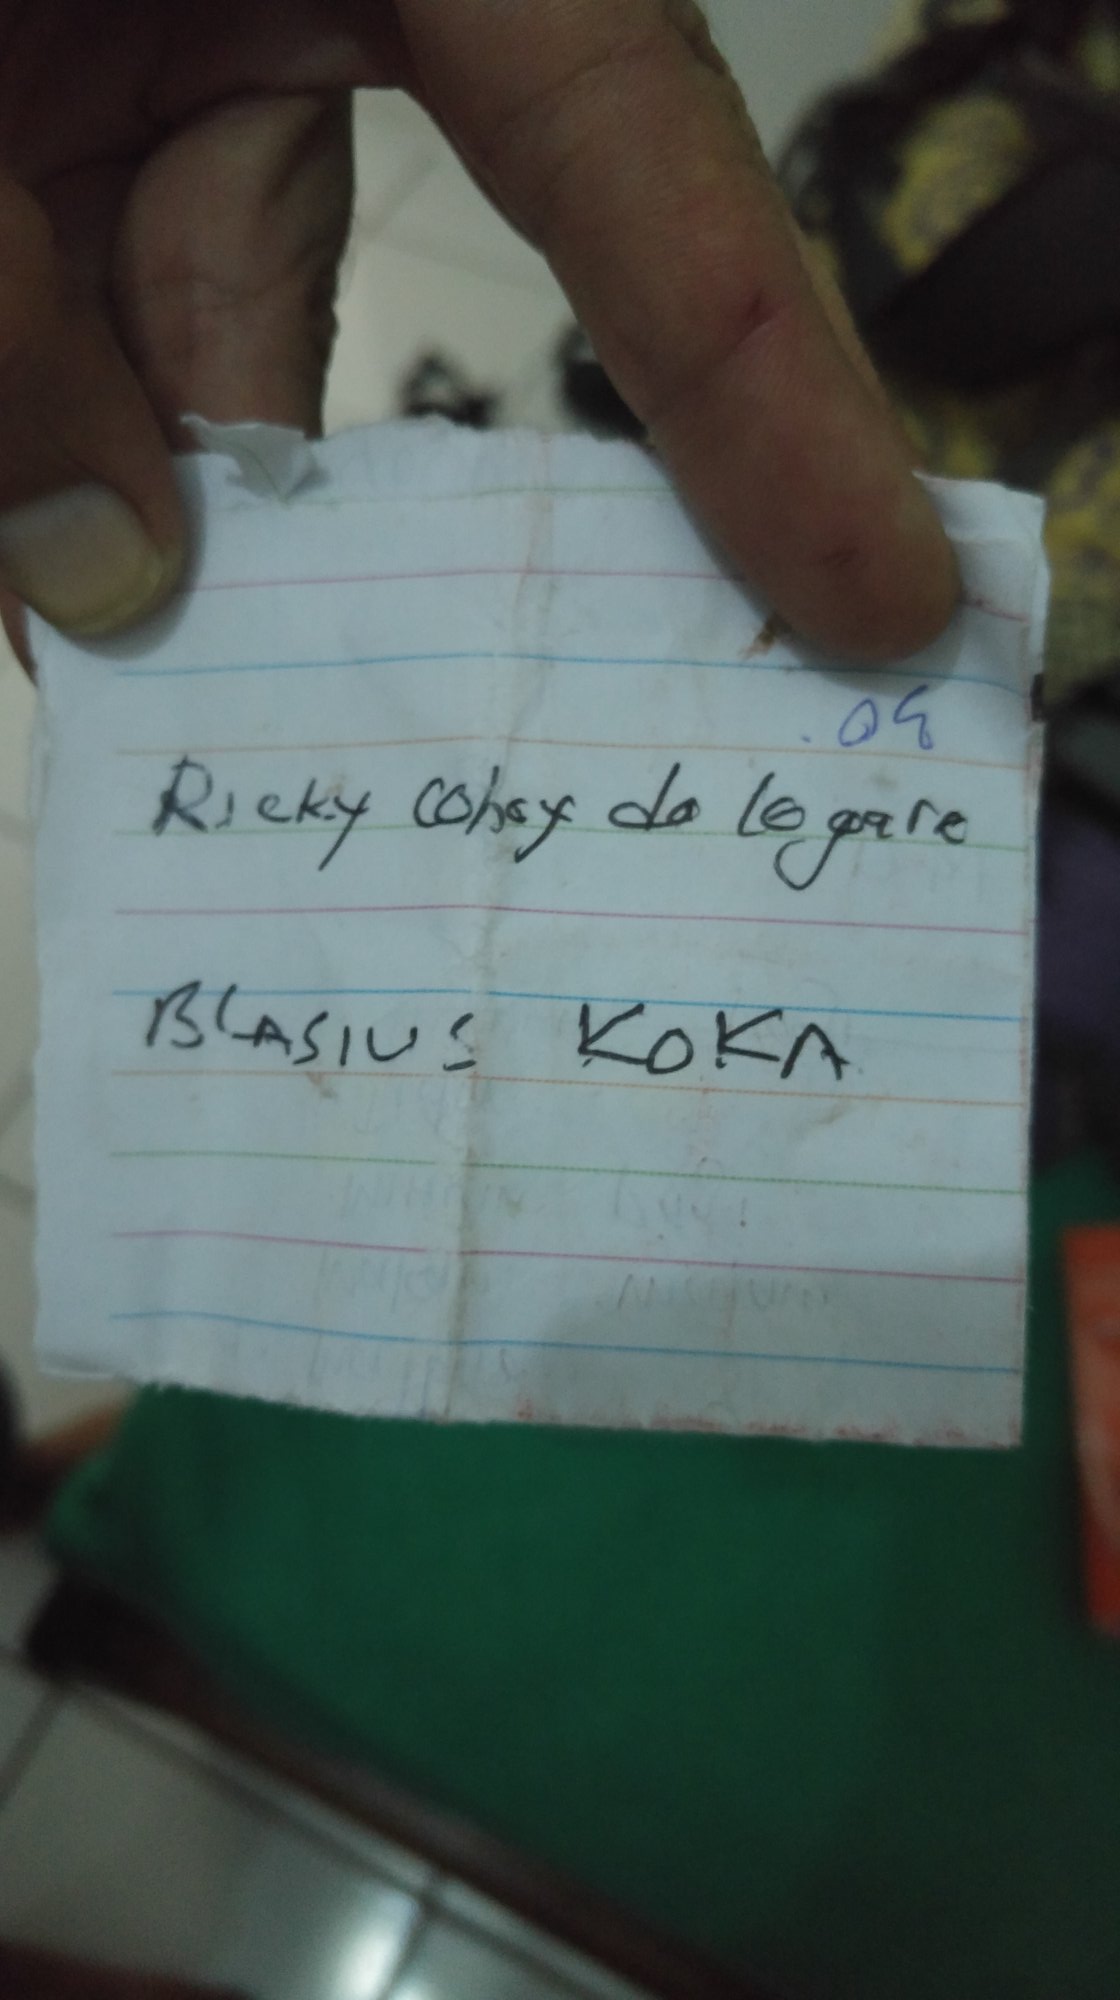 .09
Ricky Cohoy do Logare
BLASIUS KOKA